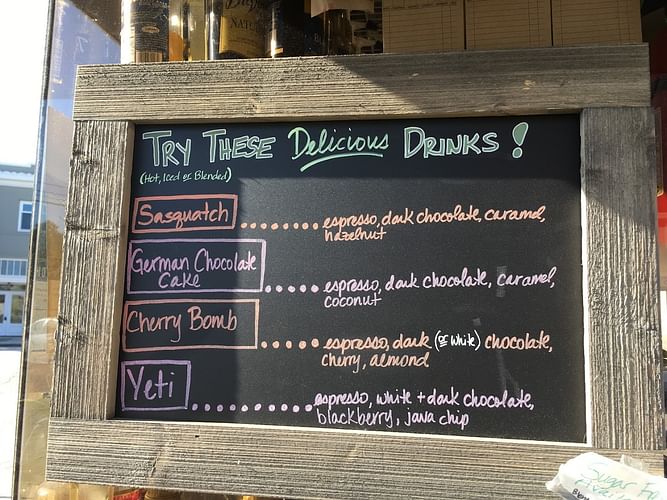 TRY THESE Delicious DRINKS!
(Hot, Iced or Blended)
Sasquatch ....... espresso, dark chocolate, caramel,
hazelnut
German Chocolate
Cake ...... espresso, dark chocolate, caramel,
coconut
Cherry Bomb ...... espresso, dark (or white) chocolate,
cherry, almond
Yeti ............ espresso, white + dark chocolate,
blackberry, java chip
Sugar